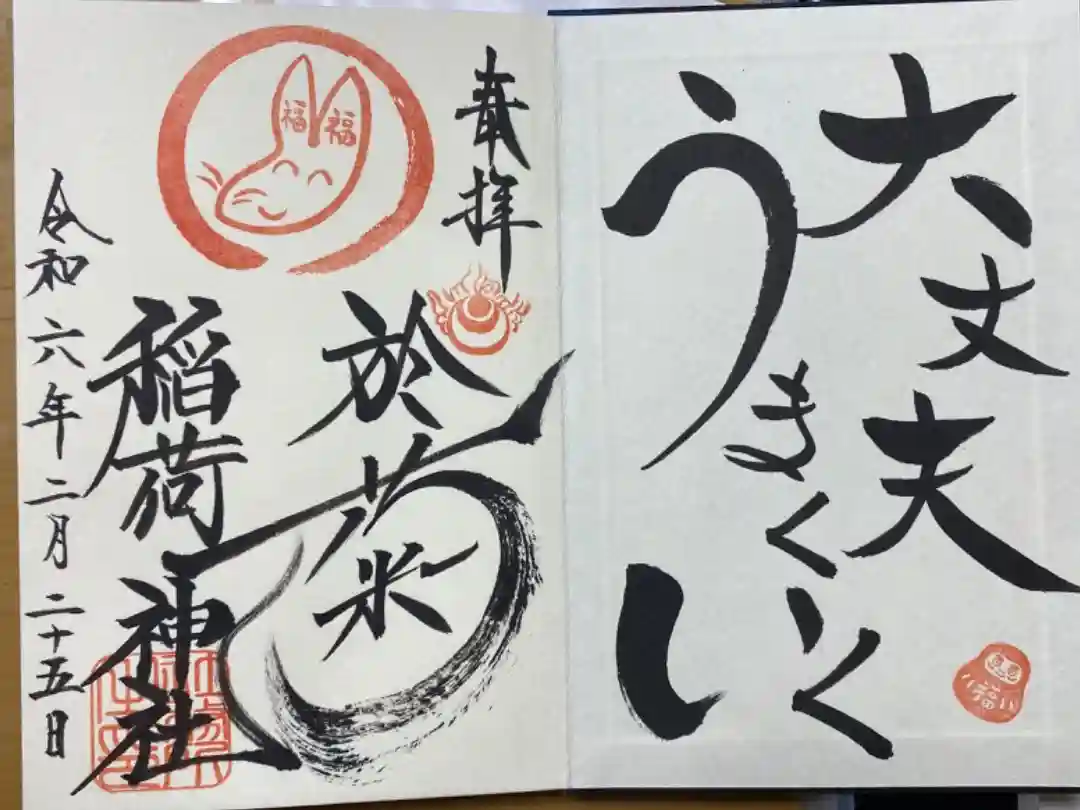 大丈夫
うまくいく
福
奉拝
於菊
福 福
稲荷神社
令和六年二月二十五日